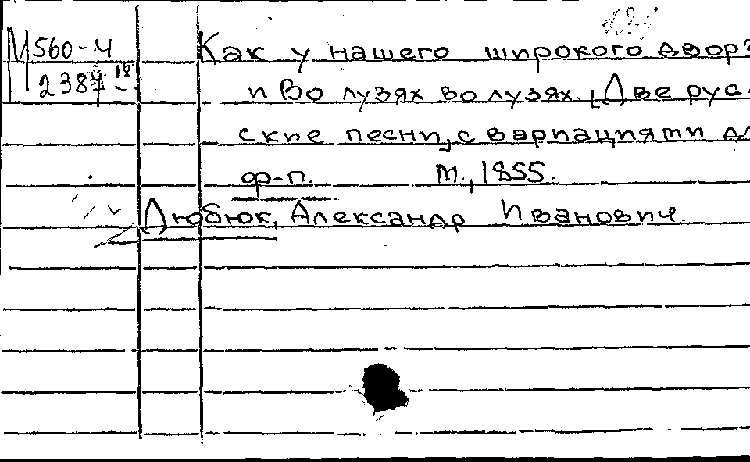 М560-4
238⁠7
Как у нашего широкого двор
и Во лузях во лузях. [Две рус-
ские песни, с вариациями дл
ф-п. М., 1855.
Дюбюк, Александр Иванович